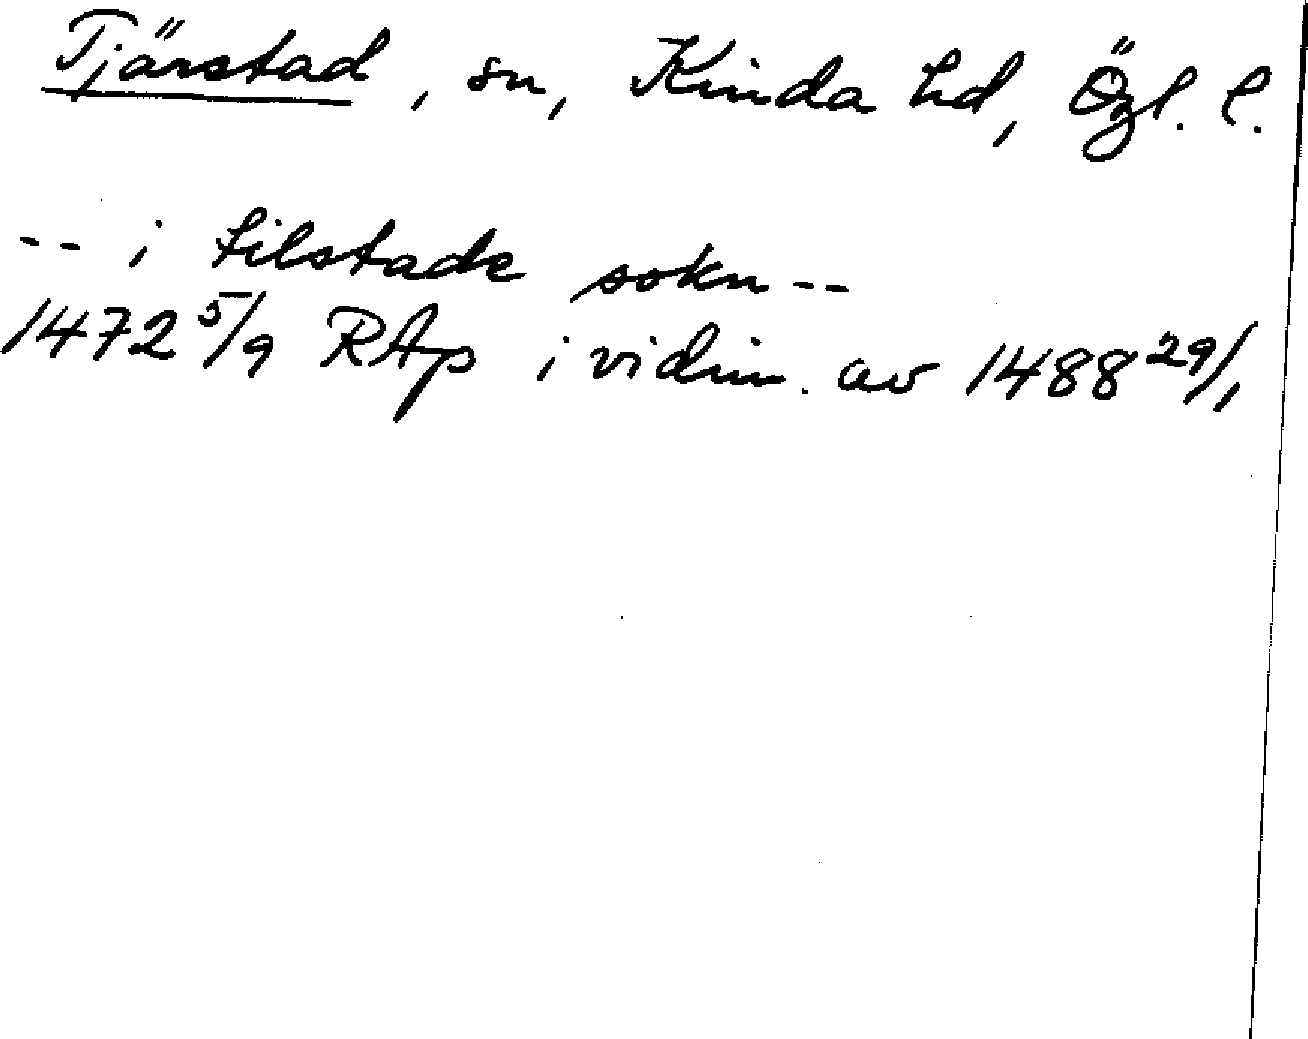 Tjärstad, sn, Kinda hd, Ögl. l.
-- i tilstade sokn --
1472 5/9 RAp i vidim. av 1488 29/1